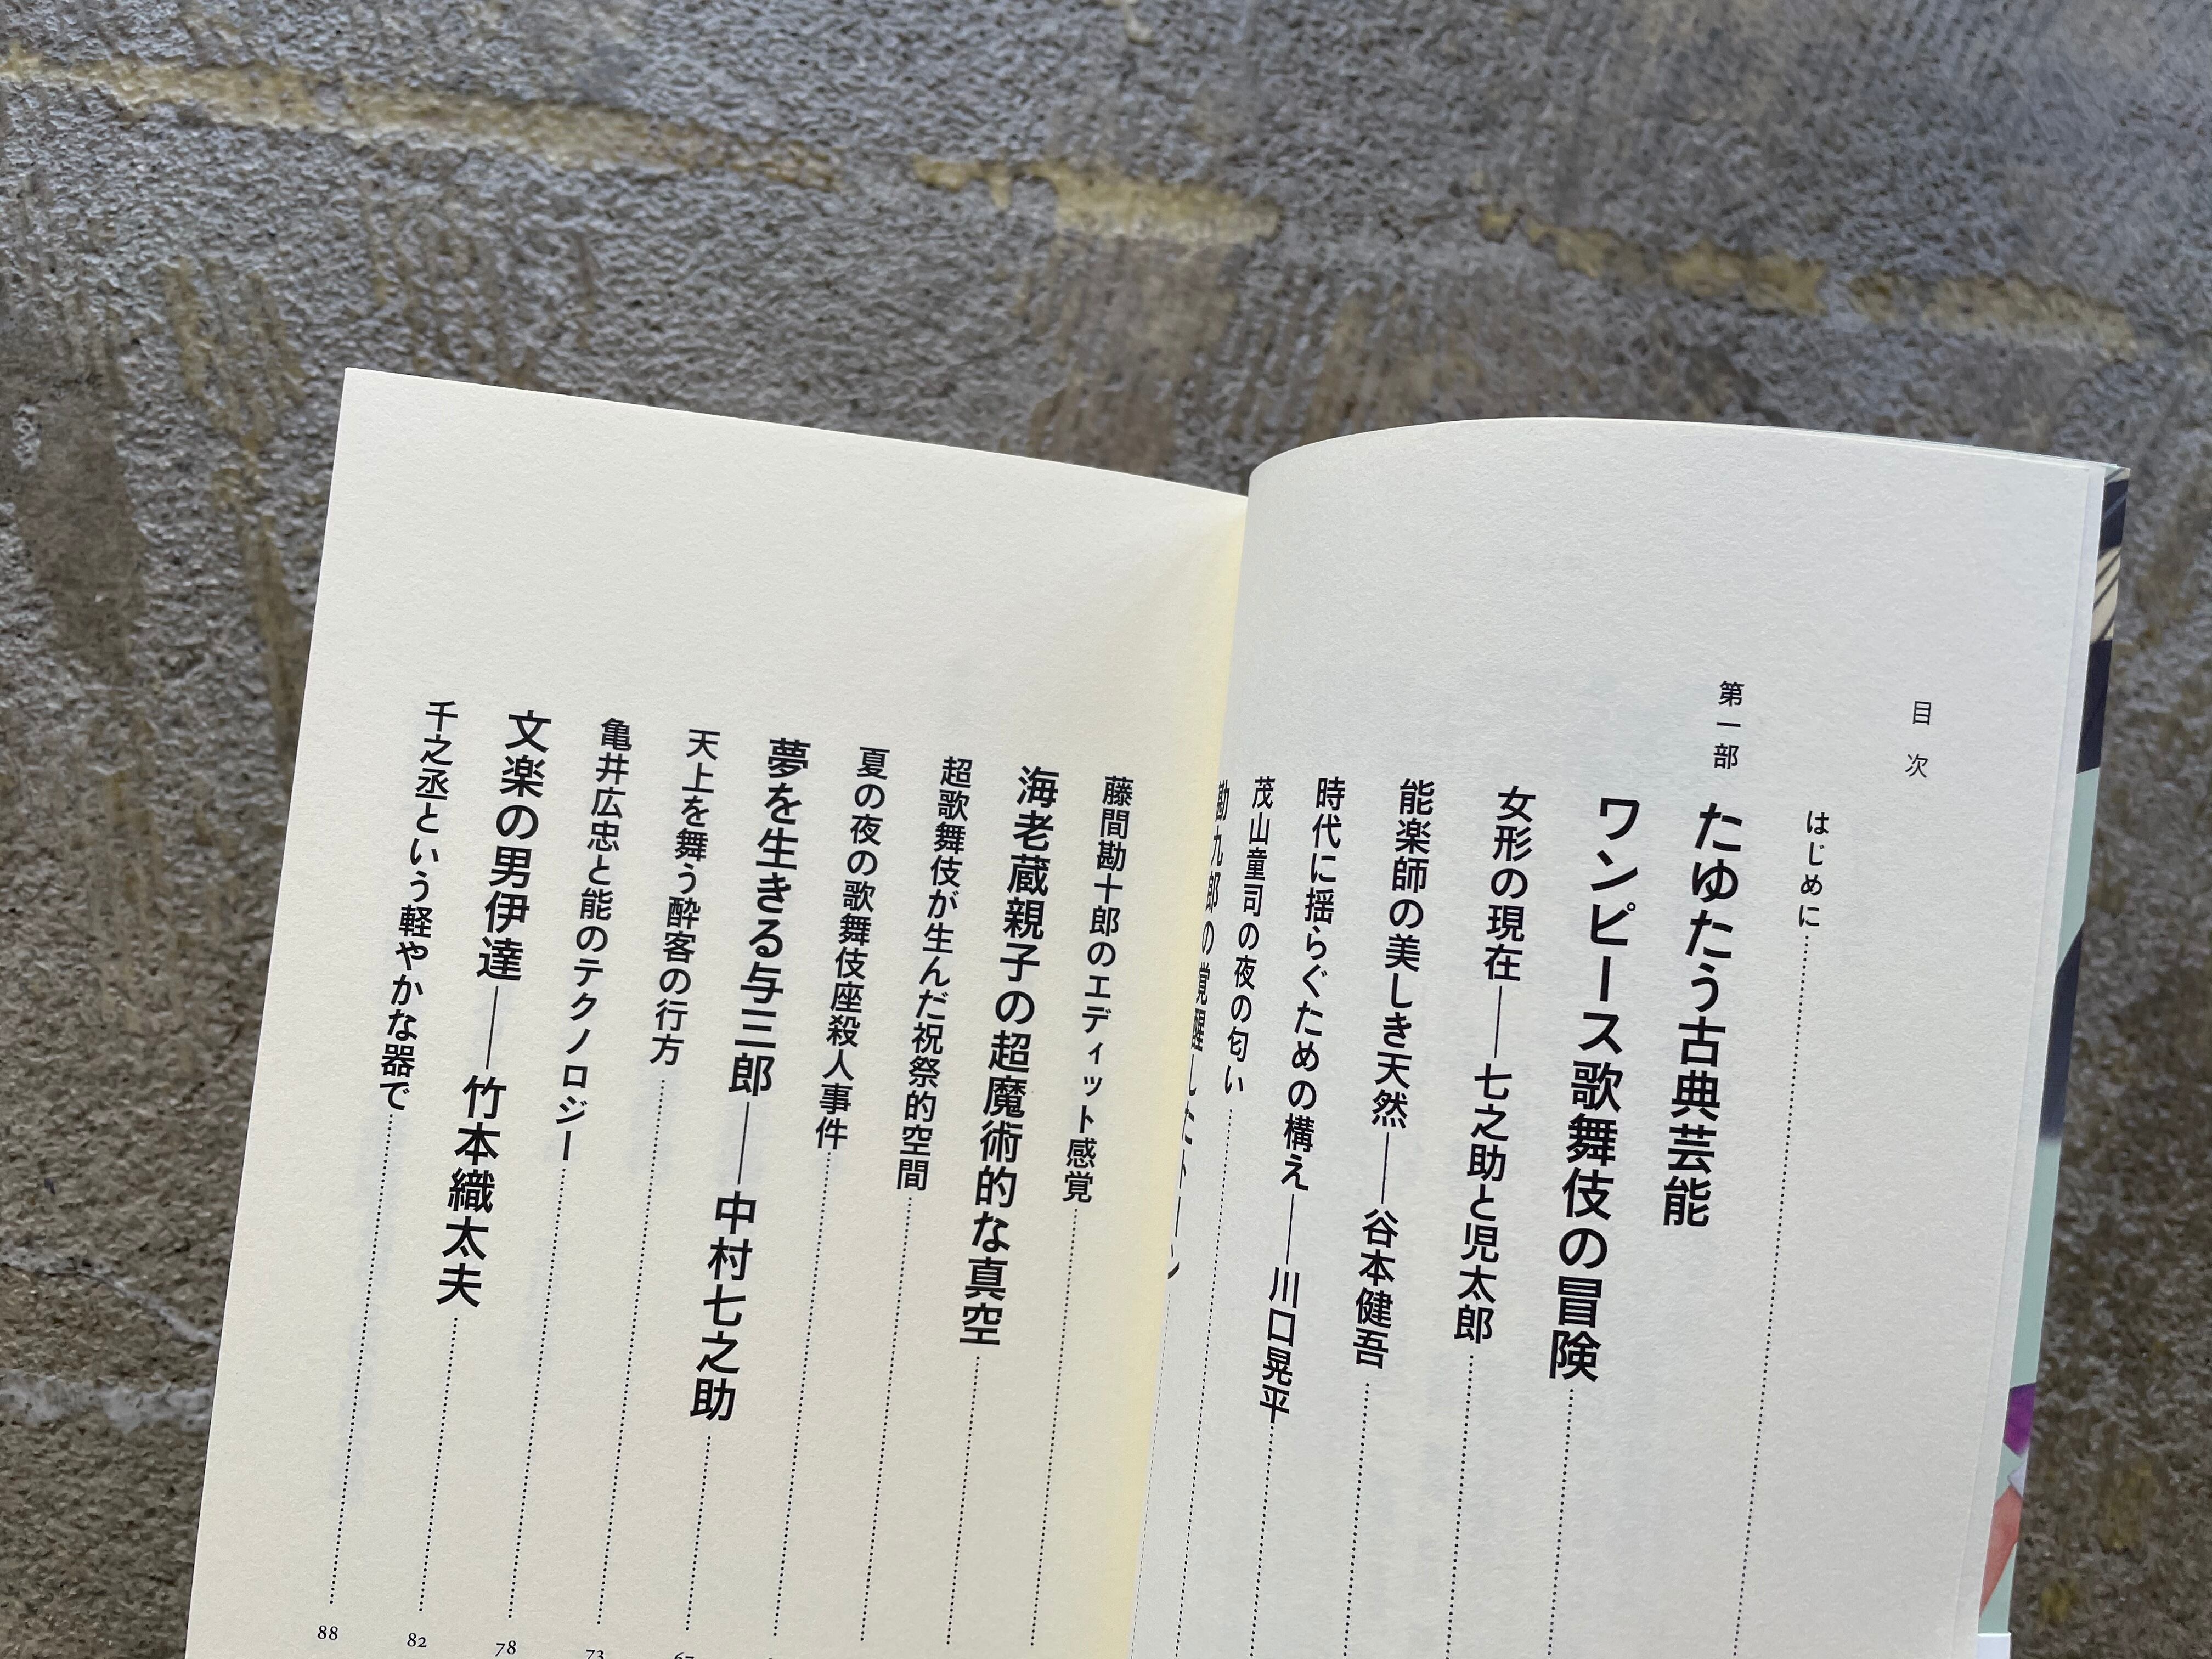 目次
はじめに
第一部 たゆたう古典芸能
ワンピース歌舞伎の冒険
女形の現在——七之助と児太郎
能楽師の美しき天然——谷本健吾
時代に揺らぐための構え——川口晃平
茂山童司の夜の匂い
勘九郎の覚醒した
藤間勘十郎のエディット感覚
海老蔵親子の超魔術的な真空
超歌舞伎が生んだ祝祭的空間
夏の夜の歌舞伎座殺人事件
夢を生きる与三郎——中村七之助
天上を舞う酔客の行方
亀井広忠と能のテクノロジー 78
文楽の男伊達——竹本織太夫 82
千之丞という軽やかな器で 88